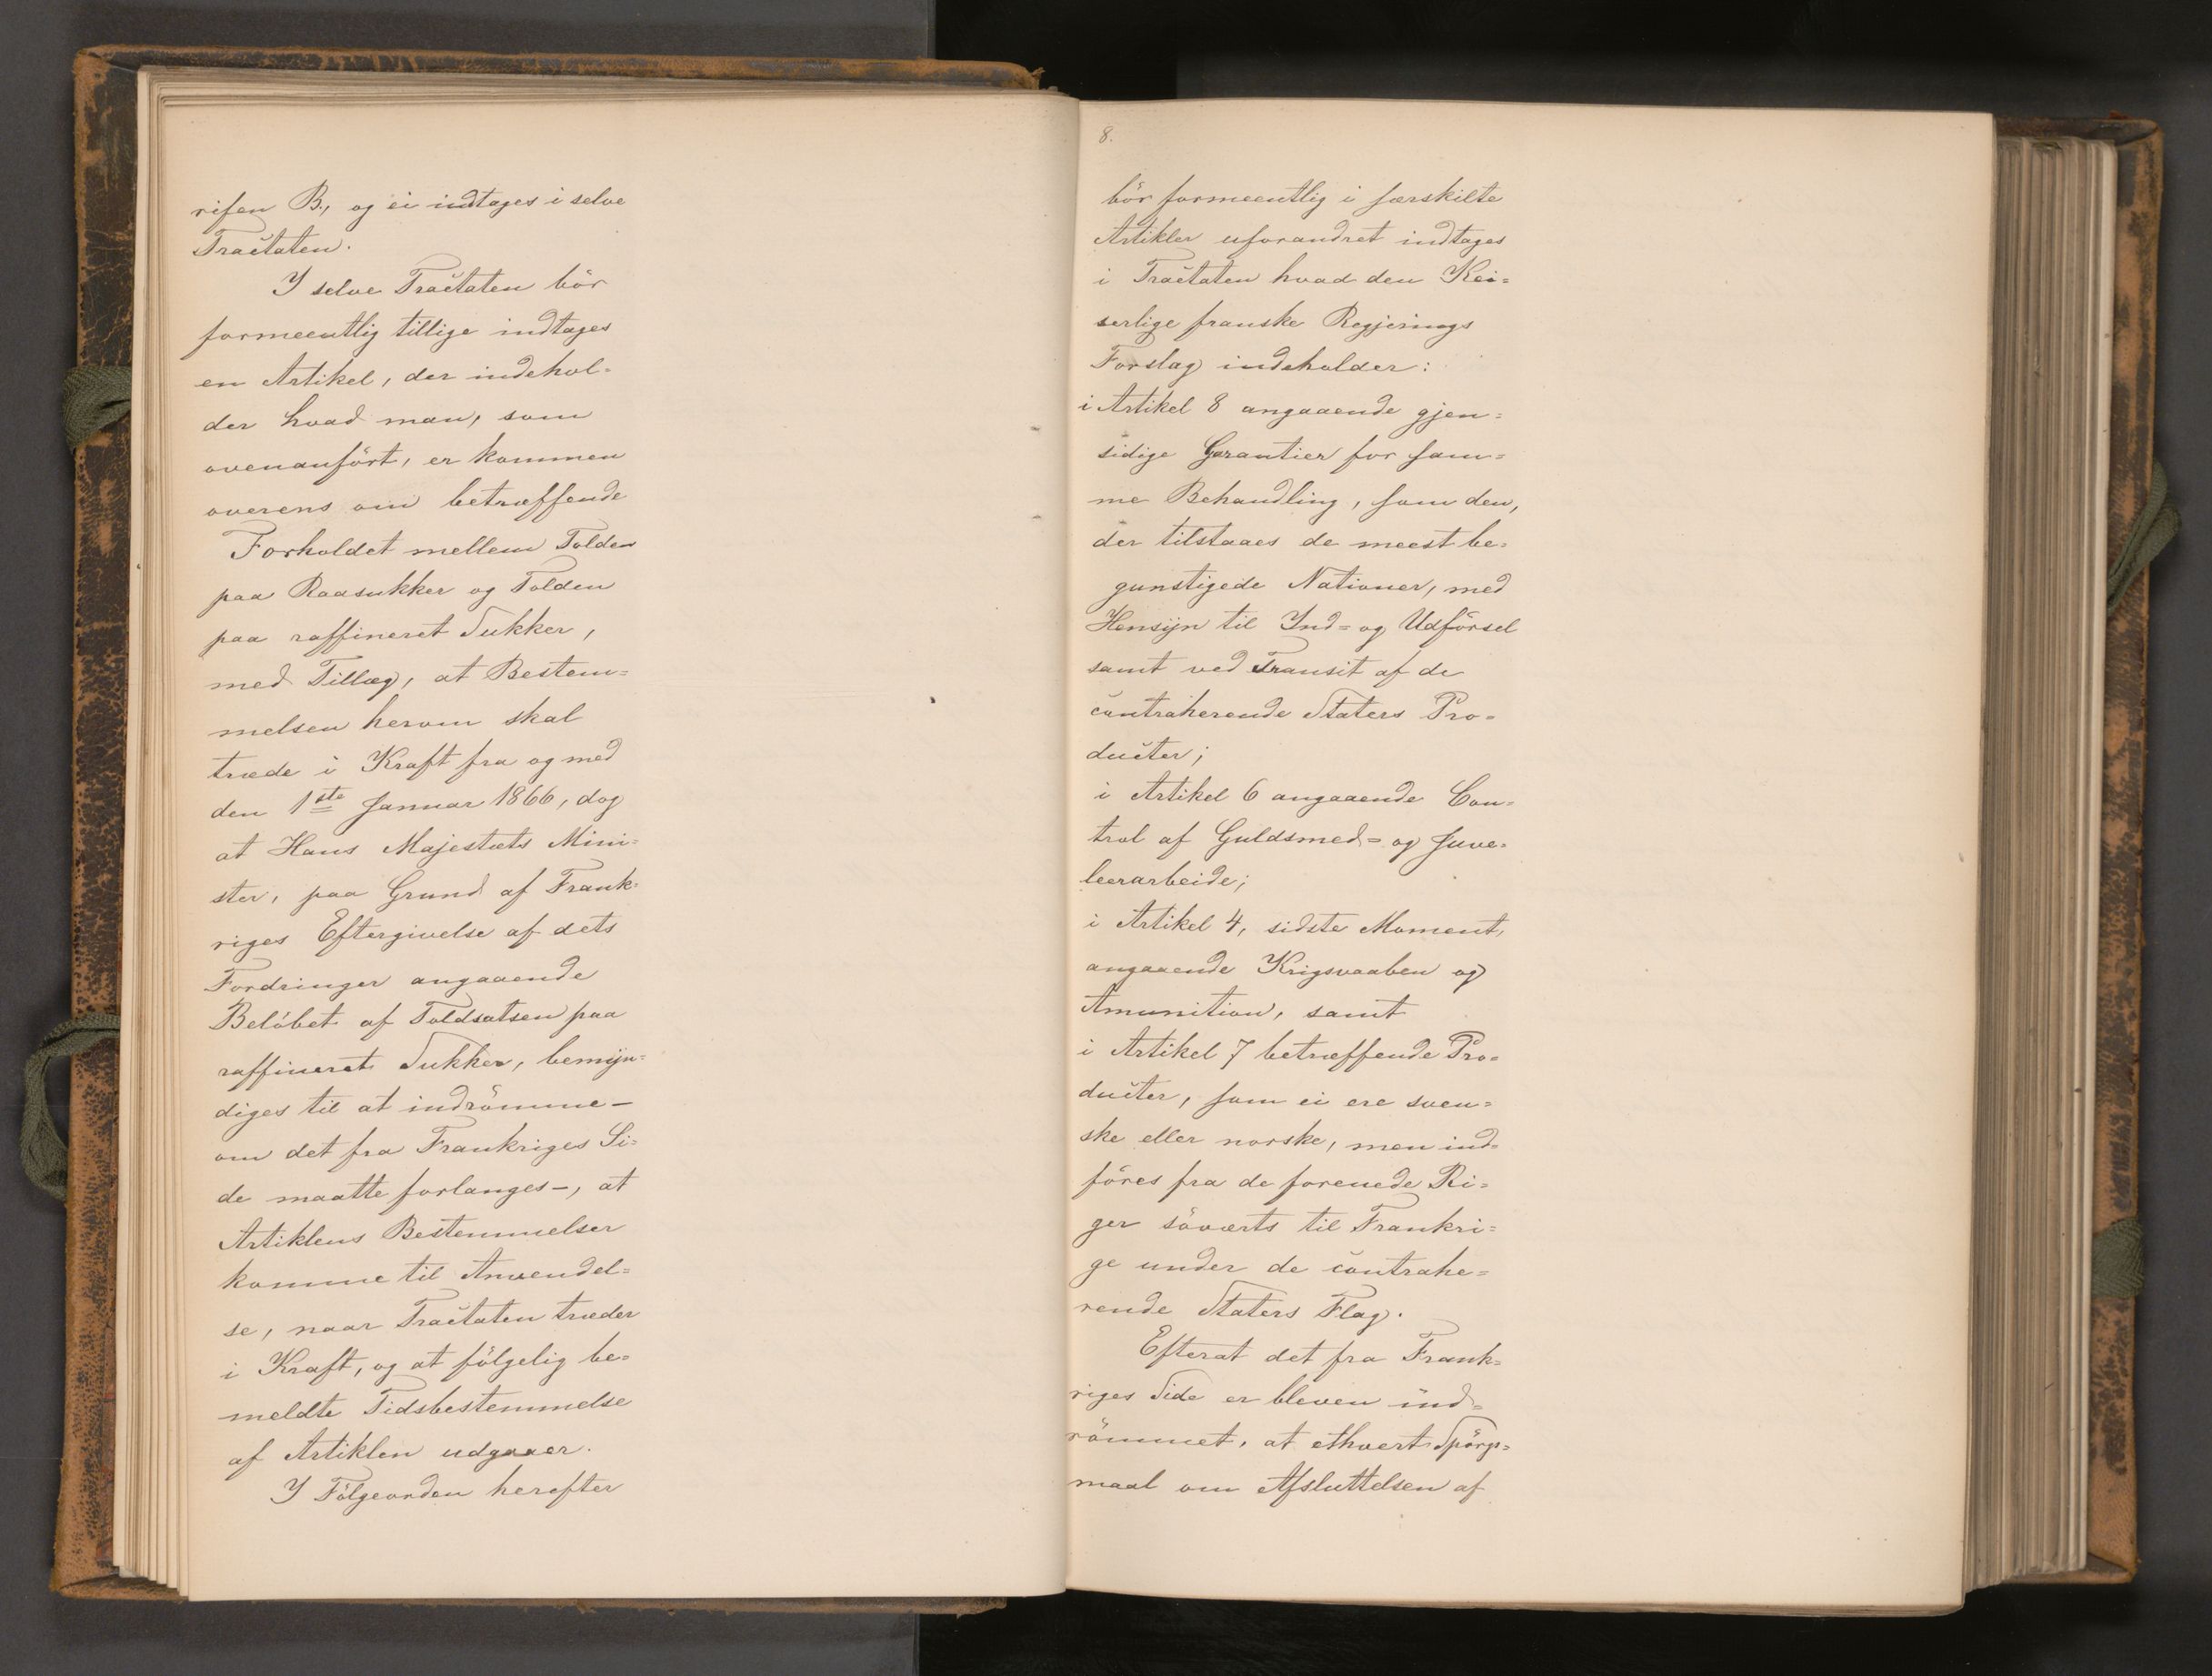 rifen B., og ei indtages i selve
Tractaten.
I selve Tractaten bör
formeentlig tillige indtages
en Artikel, der indehol=
der hvad man, som
ovenanfört, er kommen
overens om betræffende
Forholdet mellem Tolden
paa Raasukker og Tolden
paa raffineret Sukker,
med Tillæg, at Bestem=
melsen herom skal
træde i Kraft fra og med
den 1ste Januar 1866, dog
at Hans Majestæts Mini=
ster, paa Grund af Frank=
riges Eftergivelse af dets
Fordringer angaaende
Belöbet af Toldsatsen paa
raffineret Sukker, bemyn=
diges til at indrömme -
om det fra Frankriges Si=
de maatte forlanges -, at
Artiklens Bestemmelser
komme til Anvendel=
se, naar Tractaten træder
i Kraft, og at fölgelig be=
meldte Tidsbestemmelse
af Artiklen udgaaer.
I Fölgeorden herefter
8.
bör formeentlig i særskilte
Artikler uforandret indtages
i Tractaten hvad den Kei=
serlige franske Regjerings
Forslag indeholder:
i Artikel 8 angaaende gjen=
sidige Garantier for sam=
me Behandling, som den,
der tilstaaes de meest be=
gunstigede Nationer, med
Hensyn til Ind= og Udförsel
samt ved Transit af de
contraherende Staters Pro=
ducter;
i Artikel 6 angaaende Con=
trol af Guldsmed= og Juve=
leerarbeide;
i Artikel 4, sidste Moment,
angaaende Krigsvaaben og
Amunition, samt
i Artikel 7 betræffende Pro=
ducter, som ei ere sven=
ske eller norske, men ind=
föres fra de forenede Ri=
ger söværts til Frankri=
ge under de contrahe=
rende Staters Flag.
Efterat det fra Frank=
riges Side er bleven ind=
römmet, at ethvert Spörgs=
maal om Afsluttelsen af